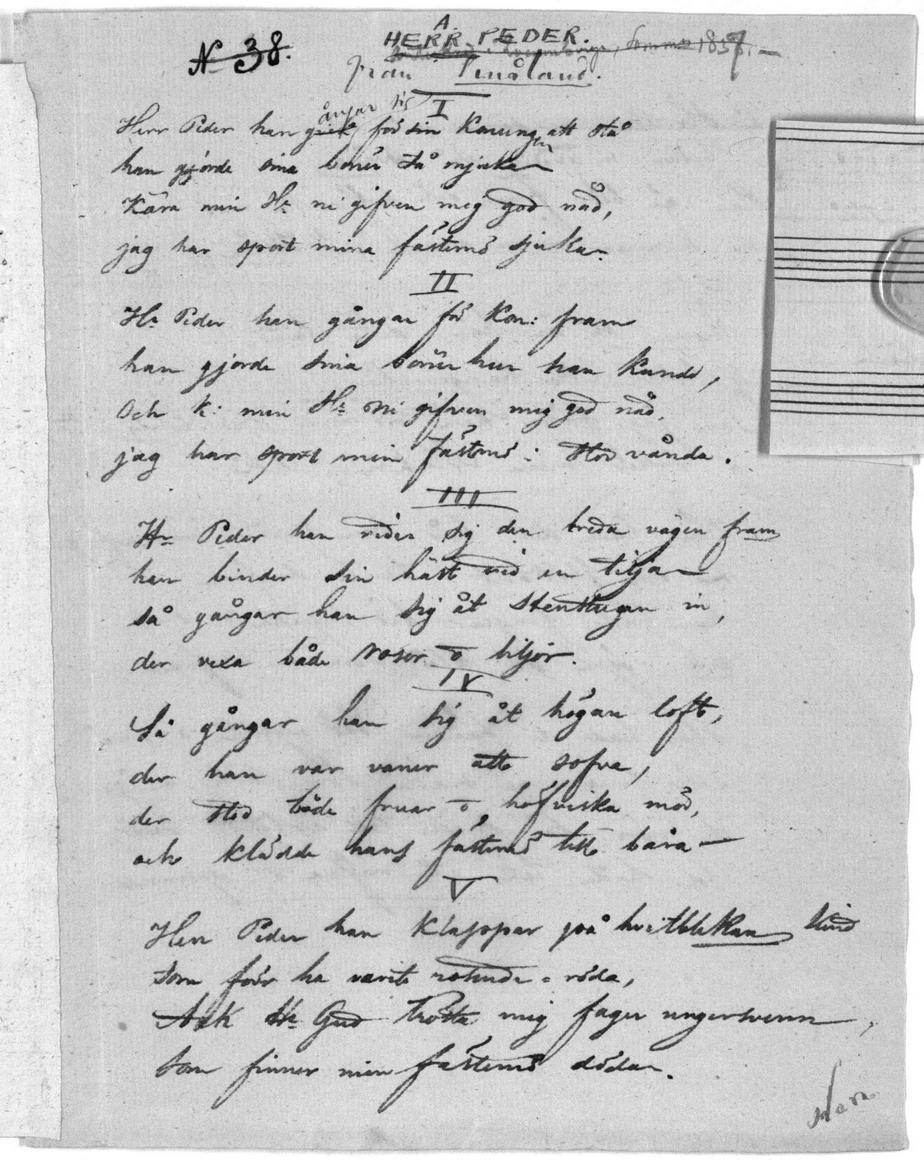 N 38.
A
HERR PEDER.
Sommar 1857.
från Småland.
I
gångar sig
Herr Peder han gick för sin Konungen att stå
han gjorde sina böner så mjuka
Kära min Hr ni gifven meg god nåd,
jag har sport mina fästemö sjuka.
II
Hr Peder han gångar för Kon: fram
han gjorde sina böner hur han kunde,
Och K: min Hr ni gifven mig god nåd,
jag har sport min fästemö i stor vånda.
III
Hr Peder han rider sig den breda vägen fram
han binder sin häst vid en tilja
så gångar han sig åt Stenstugan in,
der vexa både rosor o liljor.
IV
Så gångar han sig åt högan loft,
der han var vaner att sofva,
der stod både fruar o höfviska mör,
och klädde hans fästemö till båra
V
Herr Peder han klappar på hvitblekan kind
som förr ha varit rosende röda,
Ack Hr Gud trösta mig fager ungersvenn,
som finner min fästemö döda.
Han